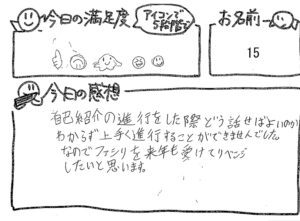 今日の満足度
アイコンで
5段階で
お名前
15
今日の感想
自己紹介の進行をした際どう話せばよいのか
わからず上手く進行することができませんでした
なのでファシリを来年も受けてリベンジ
したいと思います。